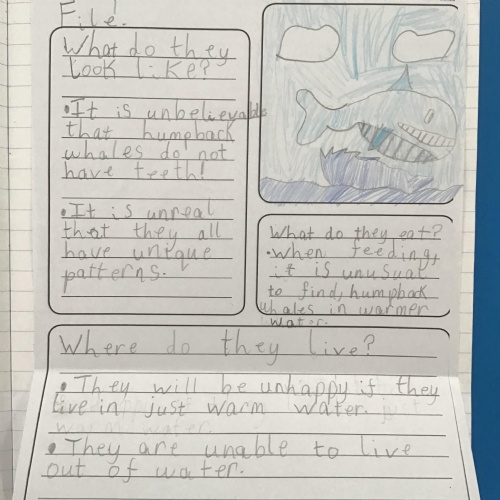 File!
What do they
look like?
•It is unbelievable
that humpback
whales do not
have teeth!
•It is unreal
that they all
have unique
patterns.
What do they eat?
•When feeding,
it is unusual
to find, humpback
whales in warmer
water.
Where do they live?
•They will be unhappy if they
live in just warm water.
•They are unable to live
out of water.